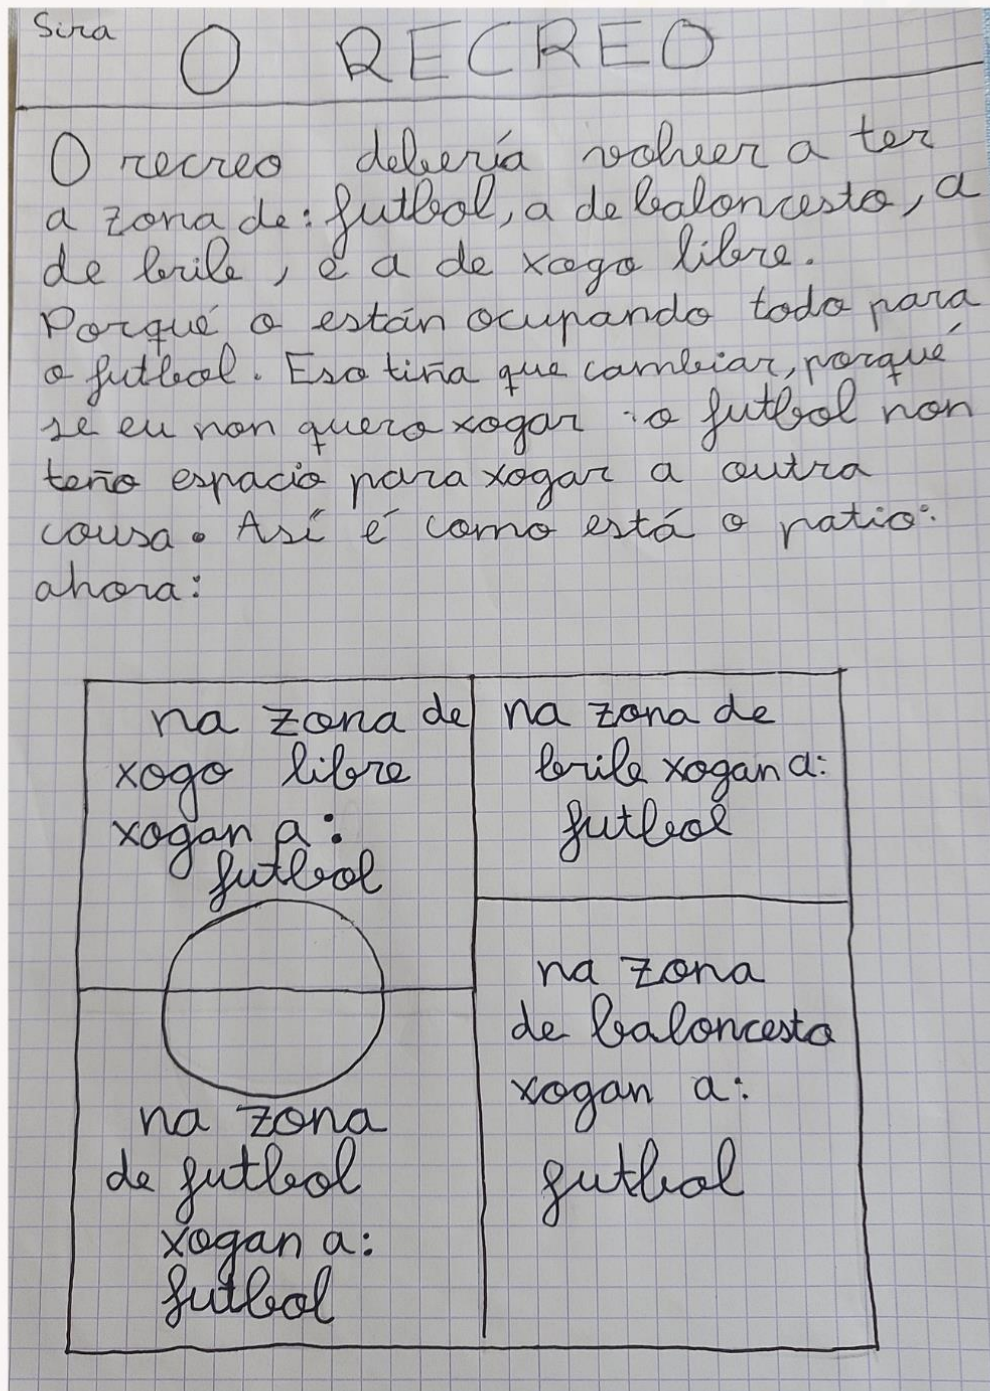 Sira
O RECREO
O recreo debería volver a ter
a zona de: futbol, a de baloncesto, a
de brile, e a de xogo libre.
Porqué o están ocupando todo para
o futbol. Eso tiña que cambiar, porqué
se eu non quero xogar o futbol non
teño espacio para xogar a outra
cousa. Así é como está o patio:
ahora:
na zona de
xogo libre
xogan a:
futbol
na zona de
brile xogan a:
futbol
na zona
de futbol
xogan a:
futbol
na zona
de baloncesto
xogan a:
futbol